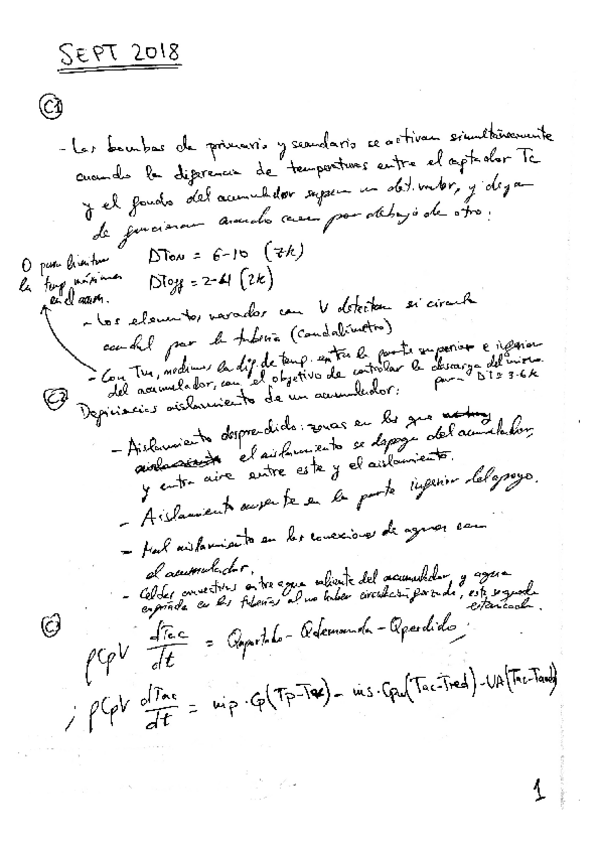 SEPT 2018
C1
- Las bombas de primario y secundario se activan simultáneamente
cuando la diferencia de temperaturas entre el captador Tc
y el fondo del acumulador supera un det. valor, y dejan
de funcionar cuando caen por debajo de otro:
DTon = 6-10 (7K)
DToff = 2-4 (2K)
O para limitar
la temp máxima
en el acum.
- Los elementos marcados con V detectan si circula
caudal por la tubería (caudalímetro)
- Con Tw, medimos la dif. de temp. entre la parte superior e inferior
del acumulador, con el objetivo de controlar la descarga del mismo.
para DT≥3-6K
C2
Deficiencias aislamiento de un acumulador:
- Aislamiento desprendido: zonas en las que
el aislamiento se despega del acumulador,
y entra aire entre este y el aislamiento.
- Aislamiento ausente en la parte inferior del apoyo.
- Mal aislamiento en las conexiones de aguas con
el acumulador.
- Celdas convectivas entre agua caliente del acumulador, y agua
enfriada en las tuberías al no haber circulación forzada, esta se queda
estancada.
C3
ρCpV dTac/dt = Qaportado - Qdemanda - Qperdido;
; ρCpV dTac/dt = mp·Cp(Tp-Tac) - ms·Cpw(Tac-Tred) - UA(Tac-Tamb)
1